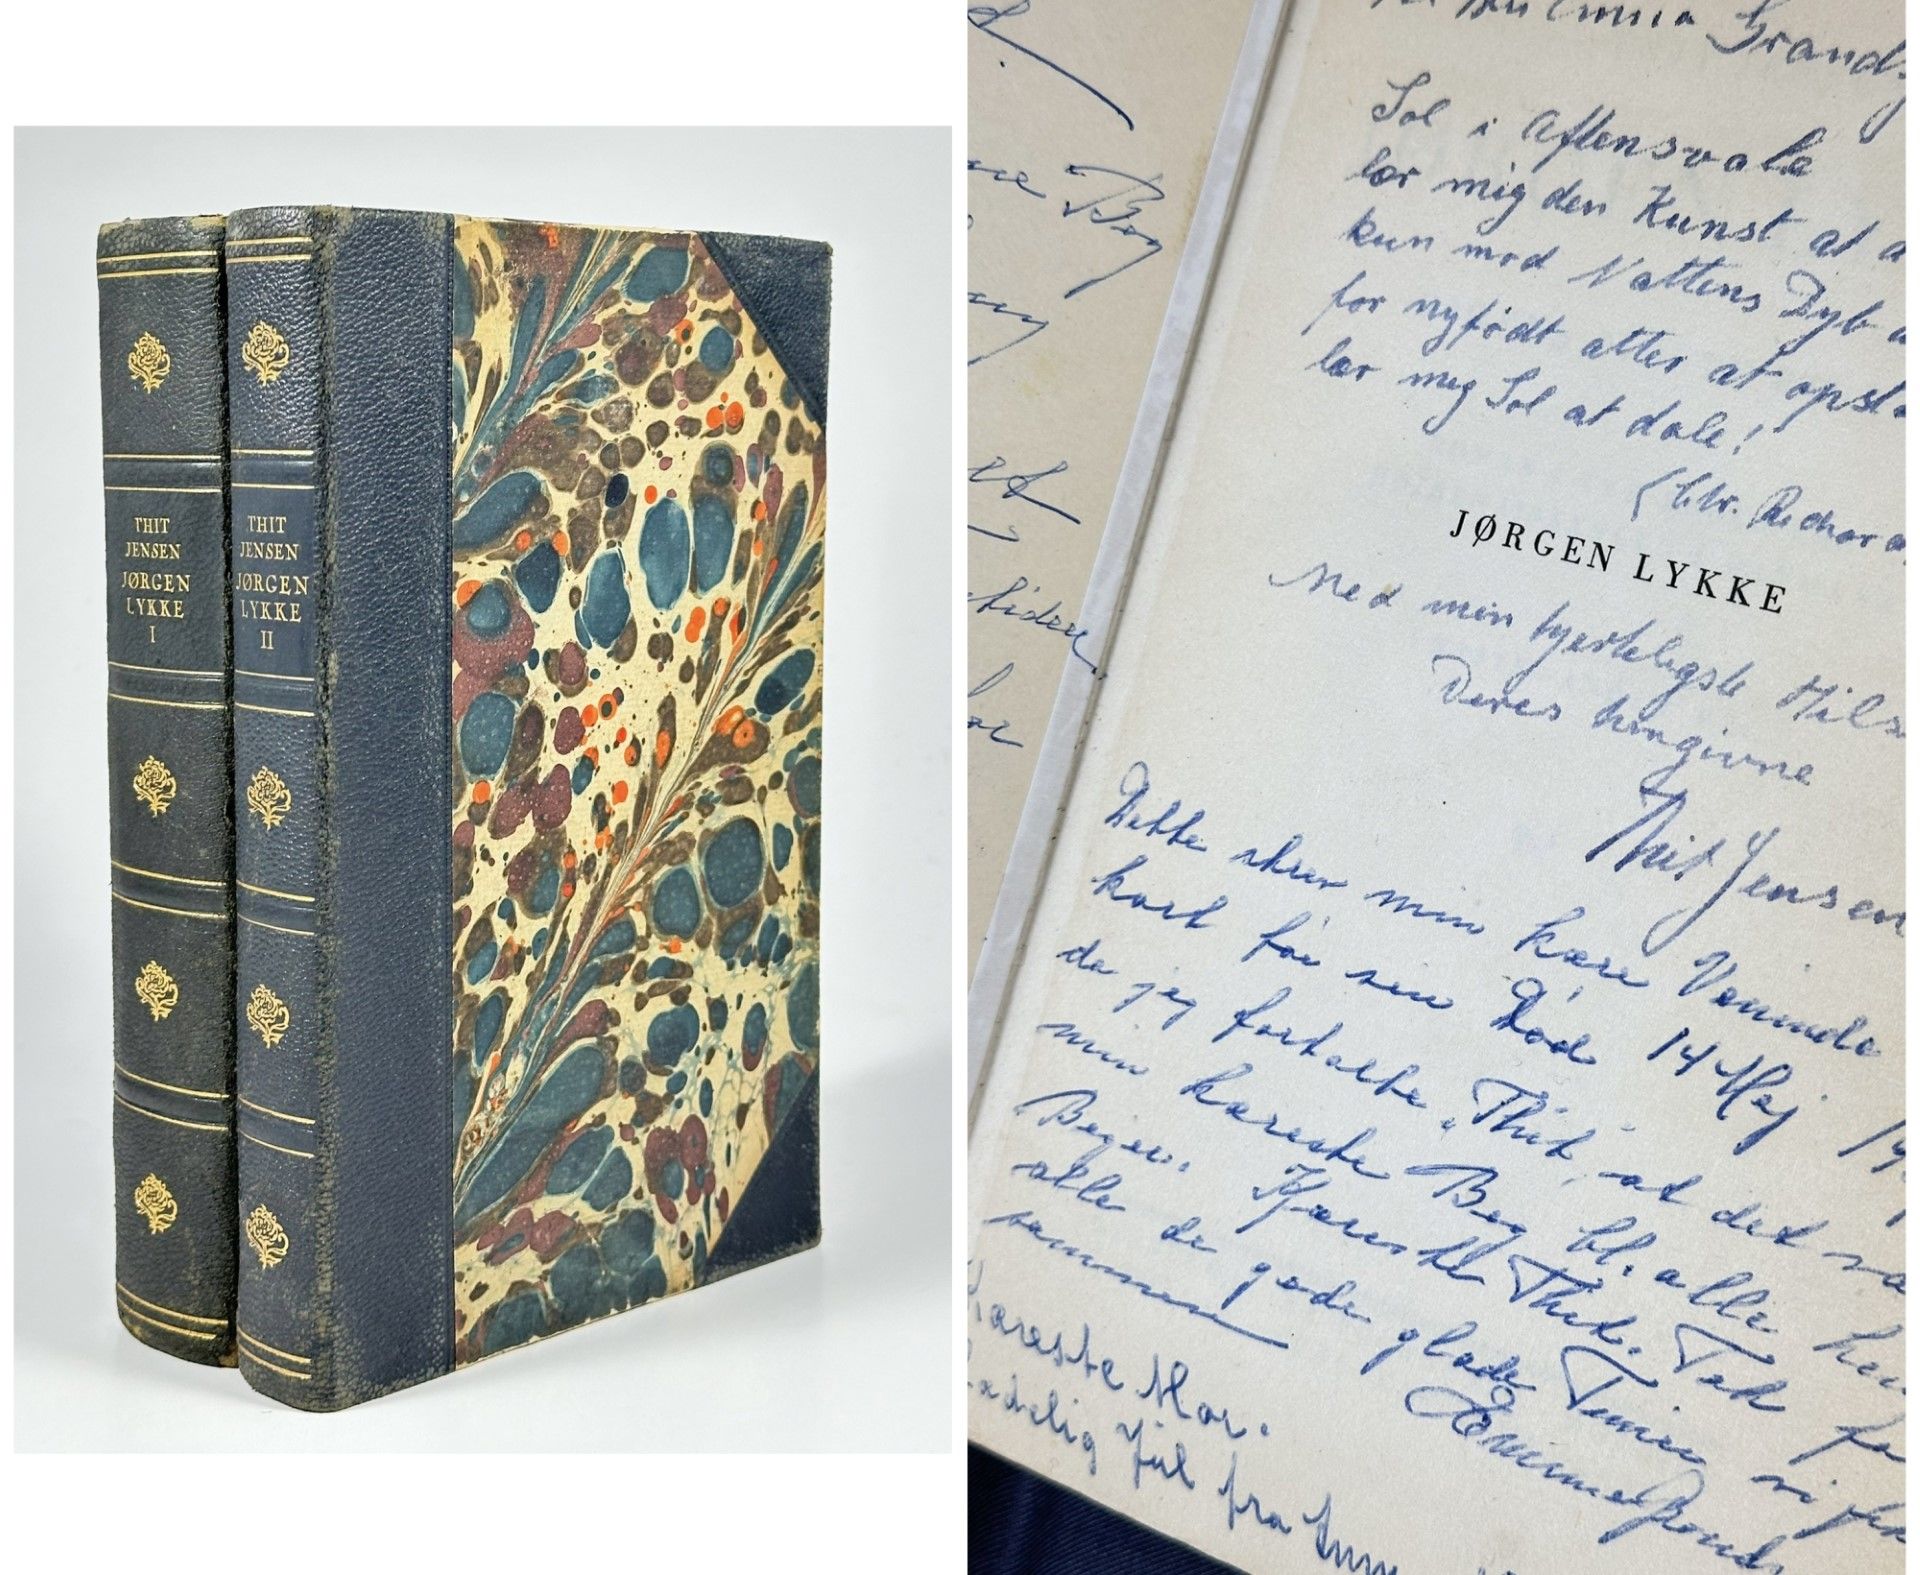 THIT
JENSEN
JØRGEN
LYKKE
I
THIT
JENSEN
JØRGEN
LYKKE
II
Bog
Emma Grand
Sol i Aftensvale
lær mig den Kunst at
kun mod Nattens Dyb
for nyfødt atter at opstå
lær mig Sol at dale!
(Chr. Richard
JØRGEN LYKKE
Med min hjerteligste Hils
Deres hengivne
Thit Jensen
Dette skrev min kære Veninde
kort før sin Død 14 Maj 19
da jeg fortalte "Thit", at det va
min kæreste Bog bl. alle hen
Bøger. Kæreste Thit. Tak fo
alle de gode glade Timer vi fik
sammen
Emma
Kæreste Mor.
Glædelig Jul fra